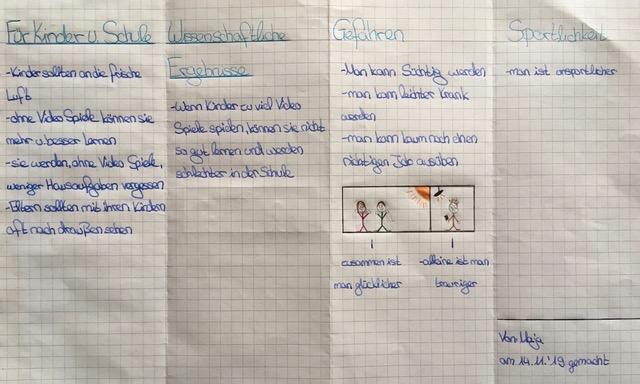 Für Kinder u. Schule
-Kinder sollten an die frische
Luft
-ohne Video Spiele können sie
mehr u. besser lernen
-sie werden, ohne Video Spiele,
weniger Hausaufgaben vergessen
-Eltern sollten mit ihren Kindern
oft nach draußen gehen
Wissenschaftliche
Ergebnisse
-Wenn Kinder zu viel Video
Spiele spielen, können sie nicht
so gut lernen und werden
schlechter in der Schule
Gefahren
-Man kann Süchtig werden
-man kann leichter Krank
werden
-man kann kaum noch einen
richtigen Job ausüben
zusammen ist
man glücklicher
-alleine ist man
trauriger
Sportlichkeit
-man ist unsportlicher
Von: Maja
am 14.11.'19 gemacht